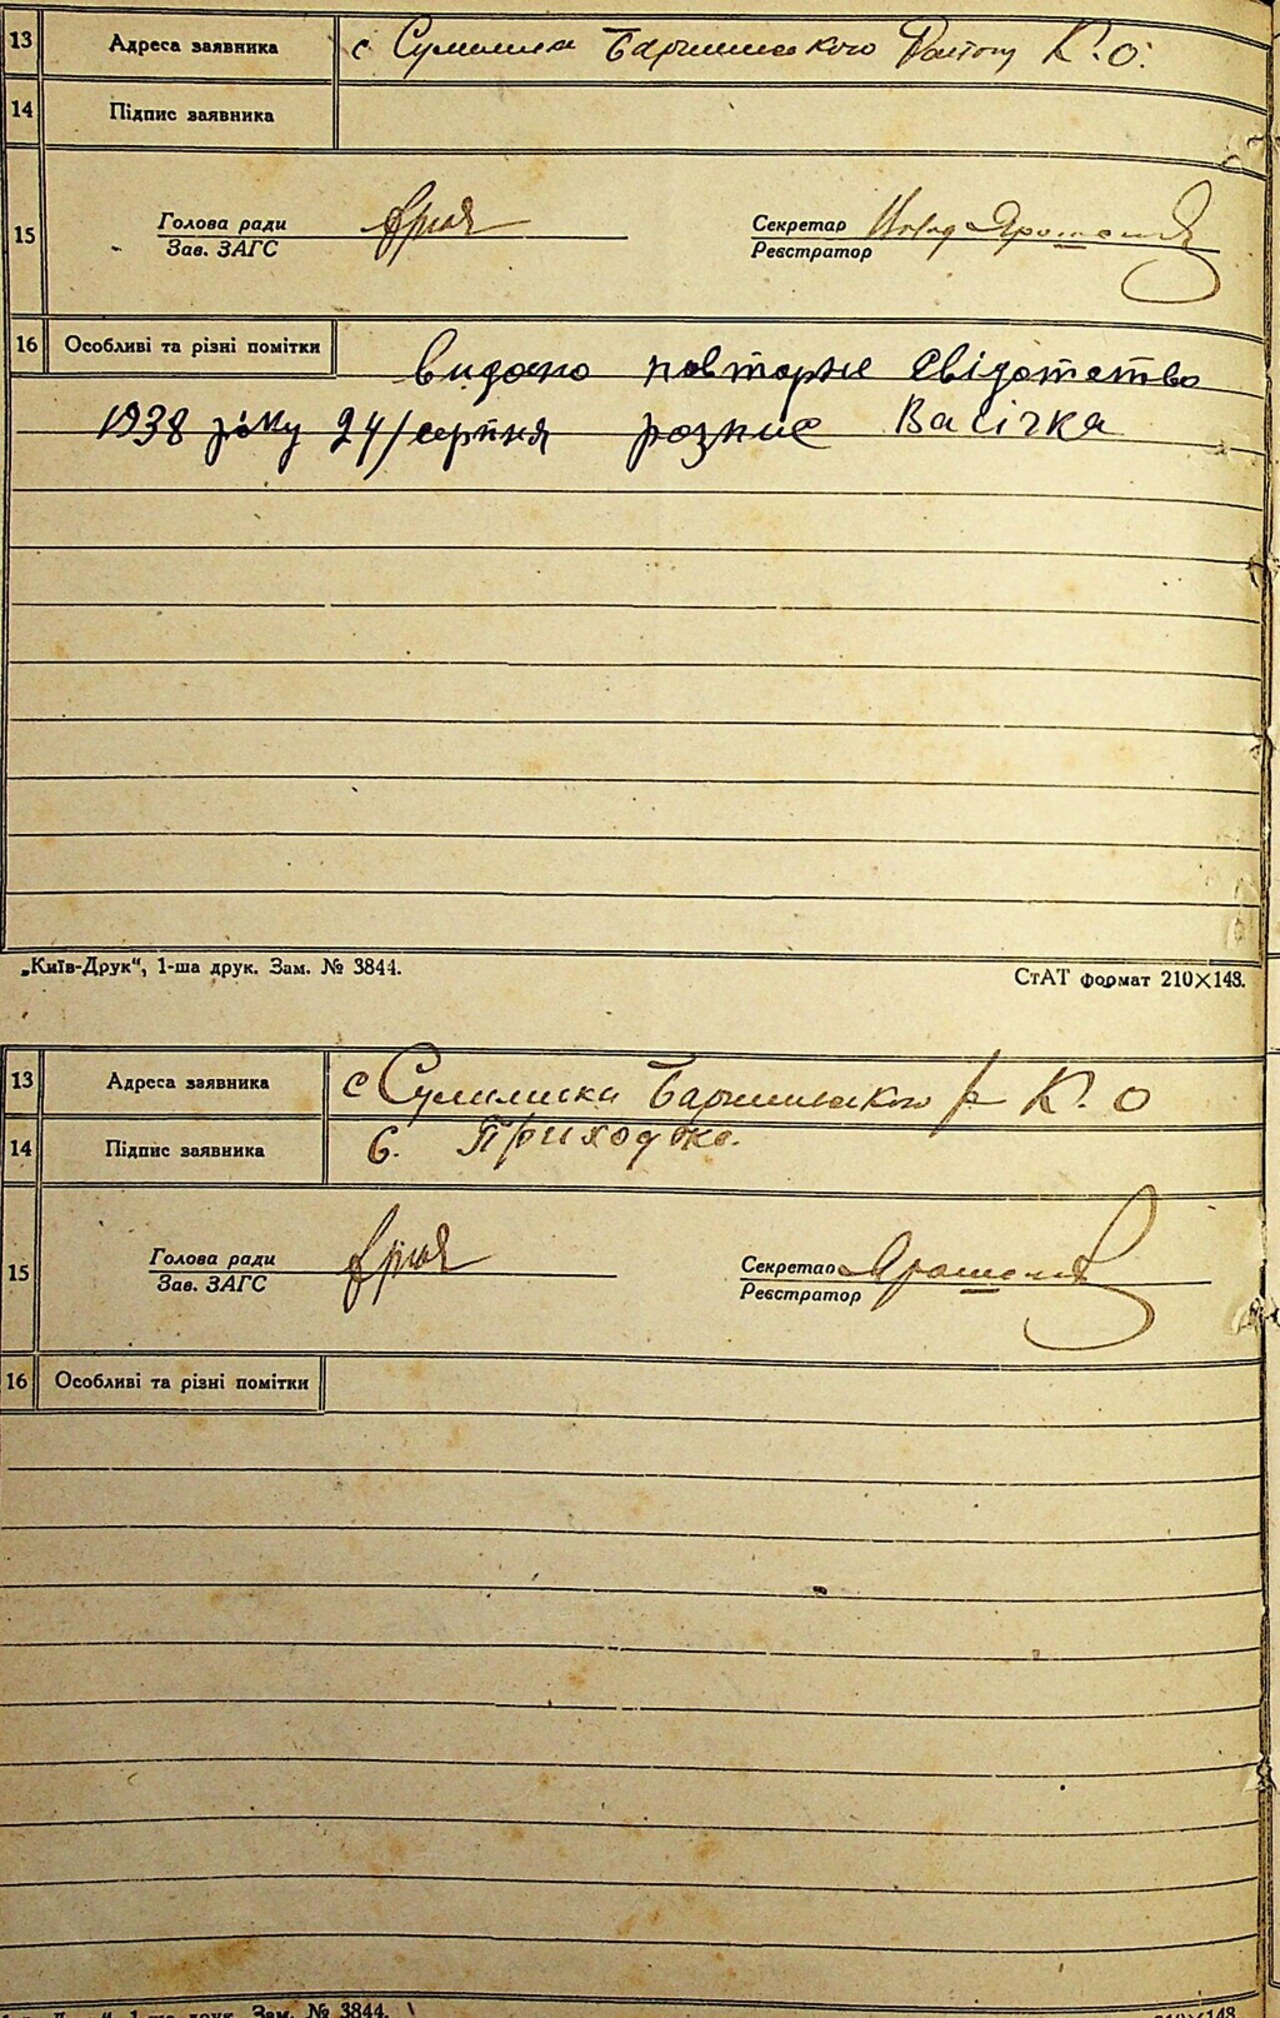 13 Адреса заявника с Сулимівка Баришівського Району К. О.
14 Підпис заявника
15 Голова ради Секретар
Зав. ЗАГС Реєстратор
16 Особливі та різні помітки видано повторне свідотство
1938 року 24/серпня розпис Васічка
„Київ-Друк“, 1-ша друк. Зам. № 3844. СтАТ формат 210×148.
13 Адреса заявника с Сулимівка Баришівського р К. О
14 Підпис заявника Є. Приходько.
15 Голова ради Секретар
Зав. ЗАГС Реєстратор
16 Особливі та різні помітки
1-ша друк. Зам. № 3844. 210×148